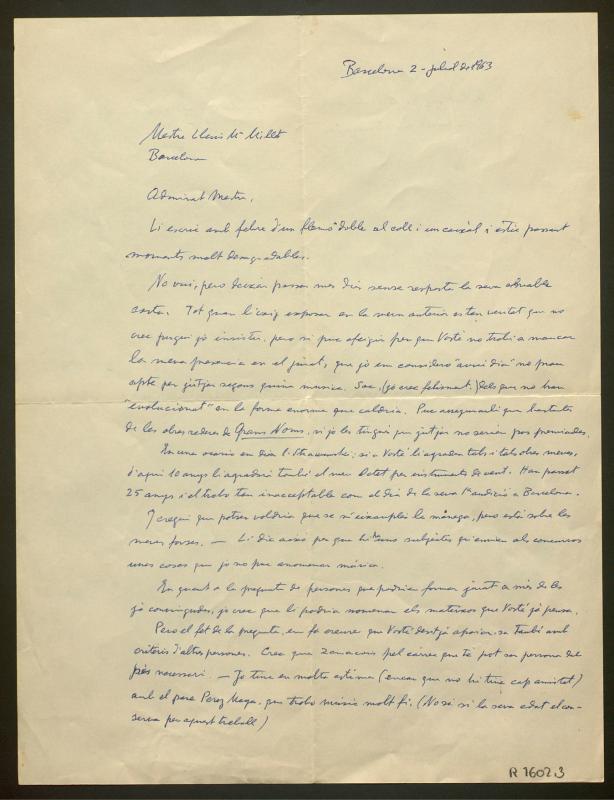 Barcelona 2 - juliol de 1963
Mestre Lluís Mª Millet
Barcelona
Admirat Mestre,
Li escric amb febre d'un flemó doble al coll i un caixal i estic passant
moments molt desagradables.
No vui, pero deixar passar mes dies sense resposta la seva amable
carta. Tot quan l'vaig exposar en la meva anterior es tan veritat que no
crec pugui jo insistir, pero si puc afegir per que Vosté no trobi a mancar
la meva presencia en el jurat, que jo em considero "avui dia" no prou
apte per jutjar segons quina musica. Soc, (jo crec fatalment) dels que no han
"evolucionat" en la forma enorme que caldria. Puc assegurarli que bastants
de les obres rederes de Grans Noms, si jo les tingués que jutjar no serien pas premiades.
En una ocasio em deia l'Strawinski: si a Vosté li agraden tals i tals obres meves,
d'aqui 10 anys li agradará també el meu Octet per instruments de vent. Han passat
25 anys i el trobo tan inacceptable com el dia de la seva 1ª audició a Barcelona.
I cregui que potser voldria que se m'eixamplés la mánega, pero está sobre les
meves forses. — Li dic aixó per que hi ha uns subjectes que envien als concursos
unes coses que jo no puc anomenar música.
En quant a la pregunta de persones que podrien formar jurat a més de les
ja convingudes, jo crec que le podria nomenar els mateixos que Vosté ja pensa.
Pero el fet de la pregunta, em fa creure que Vosté desitja apoiar-se també amb
criteris d'altres persones. Crec que Zanacois pel carrec que té pot ser persona del
tot necessari. — Jo tinc en molta estima (encara que no hi tinc cap amistat)
amb el pare Perez Moya, que trobo músic molt fi. (No sé si la seva edat el con-
serva per aquest treball)
R 7602,3